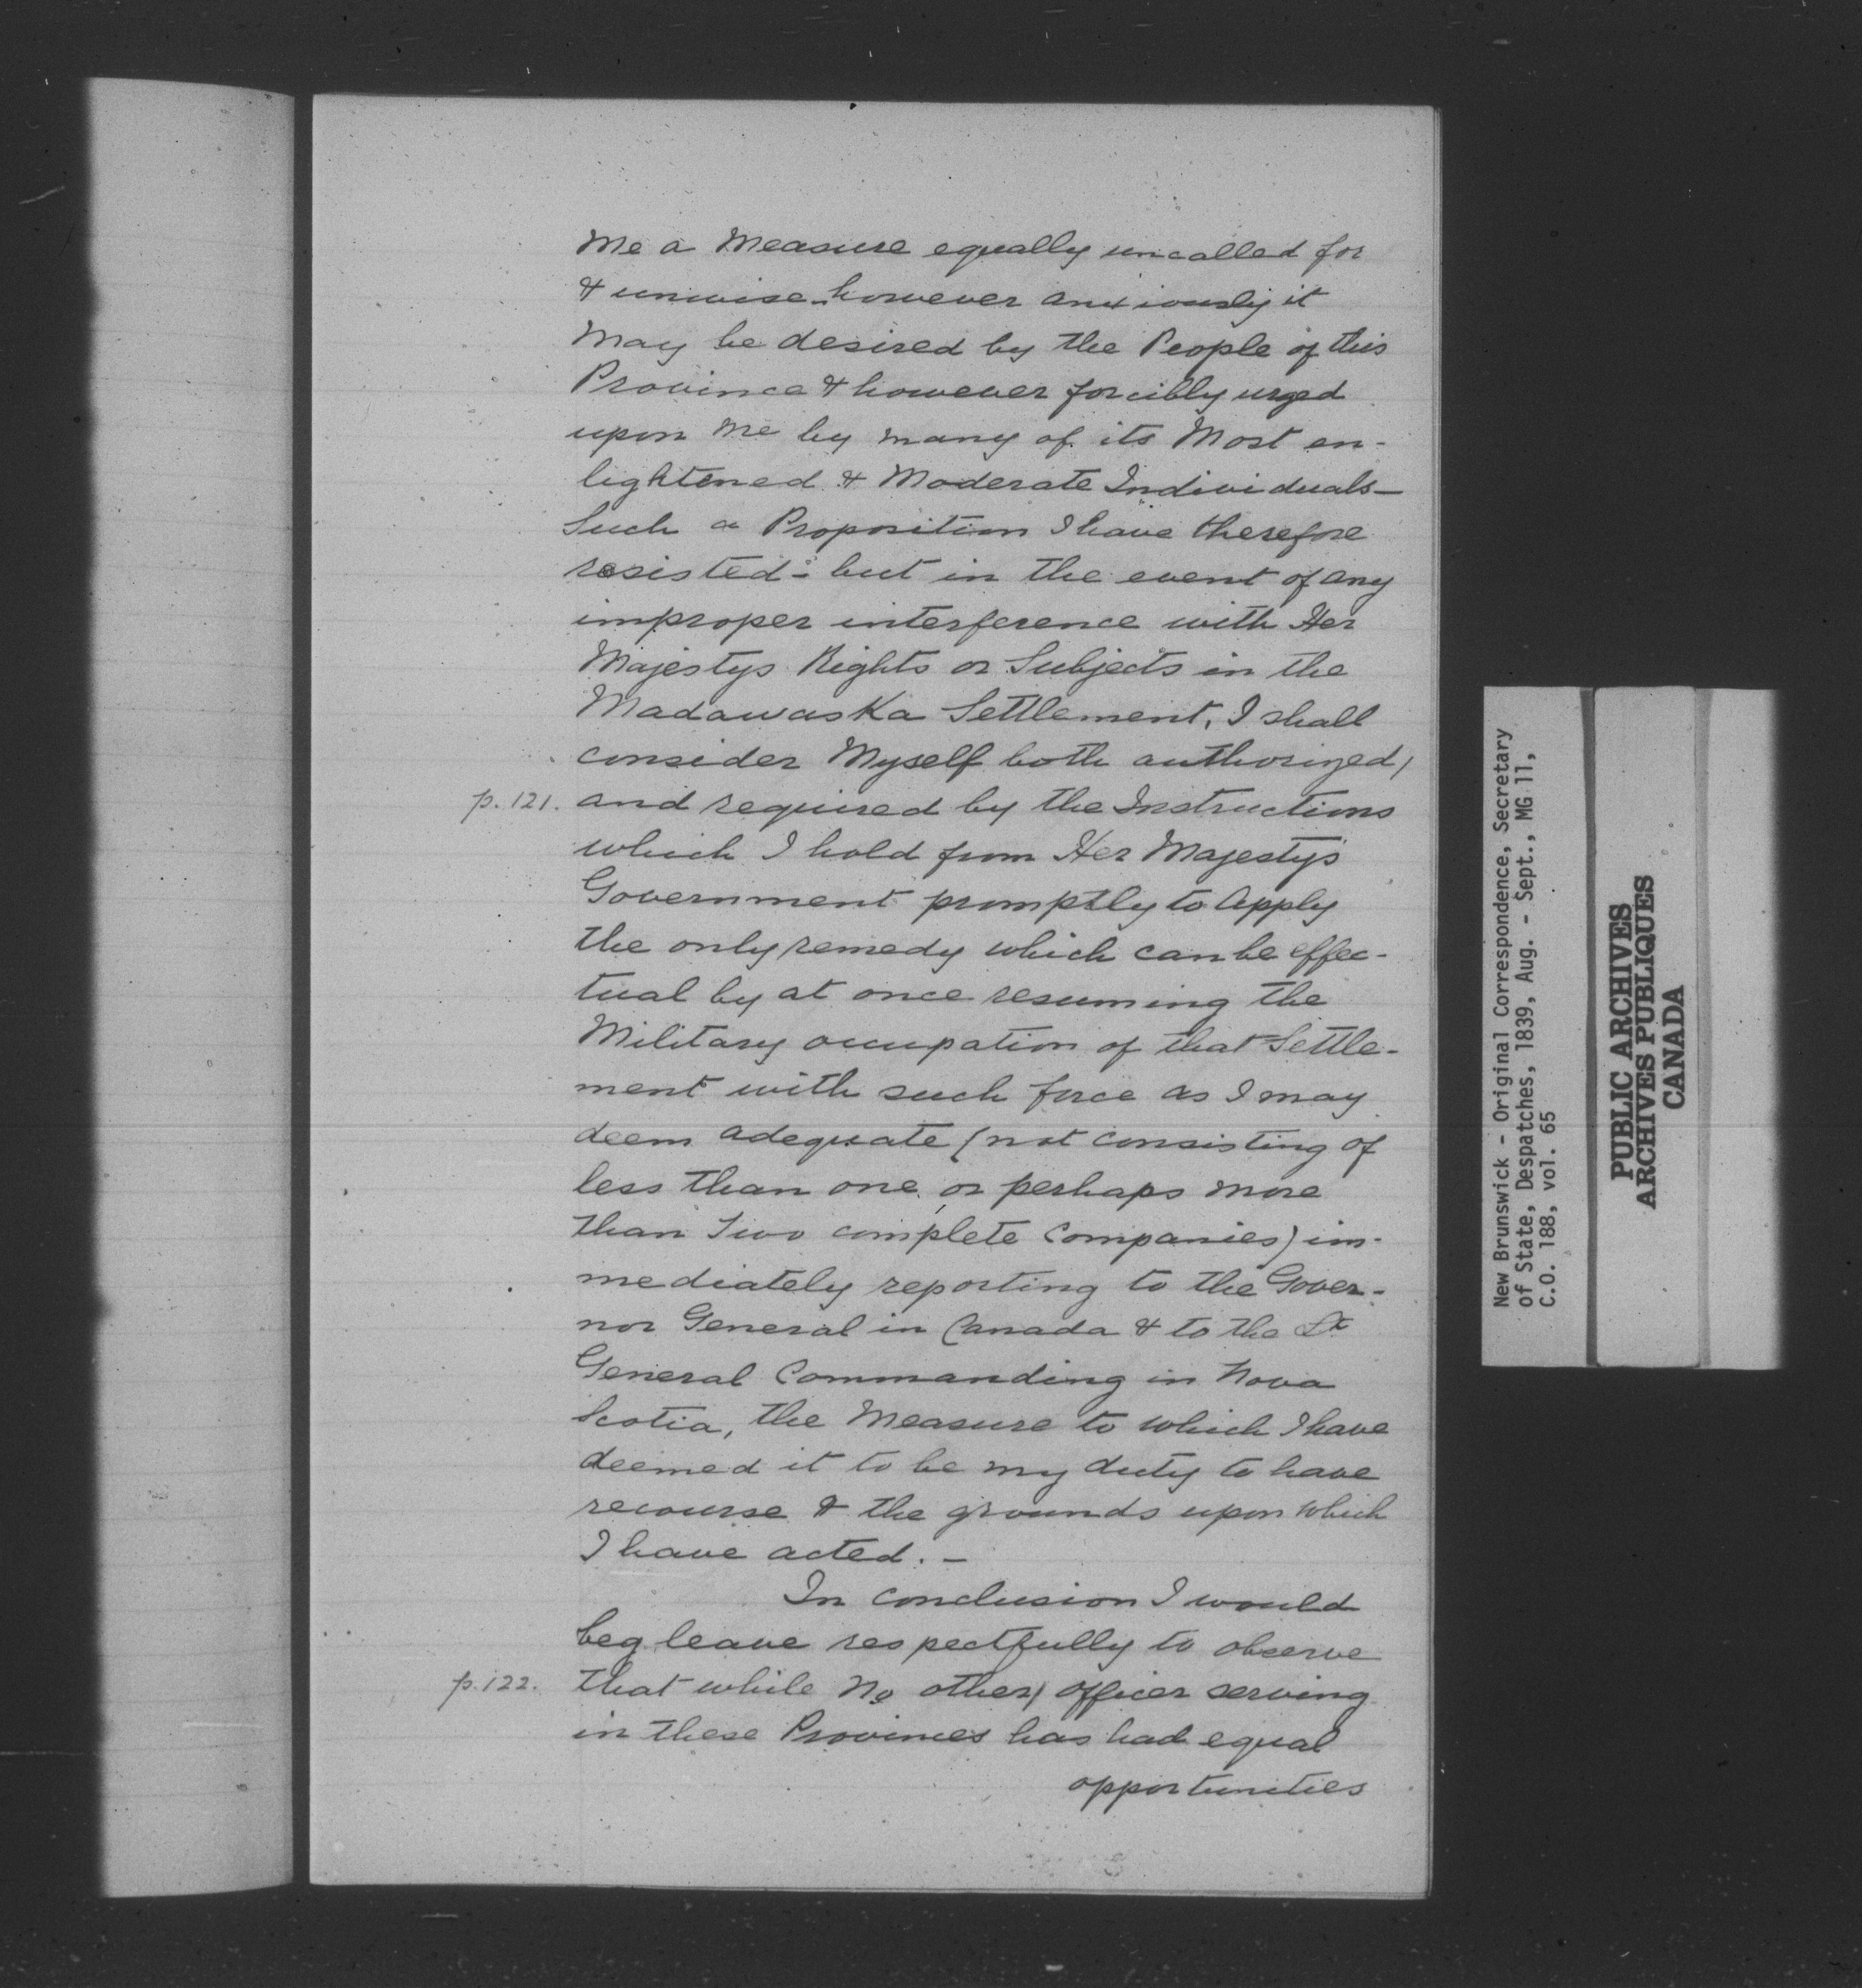 Me a Measure equally uncalled for
& unwise - however anxiously it
May be desired by the People of this
Province & however forcibly urged
upon Me by many of its Most en-
lightened & Moderate Individuals -
Such a Proposition I have therefore
resisted - but in the event of any
improper interference with Her
Majestys Rights or Subjects in the
Madawaska Settlement, I shall
consider Myself both authorized /
p. 121. and required by the Instructions
which I hold from Her Majesty's
Government promptly to apply
the only remedy which can be effec-
tual by at once resuming the
Military occupation of that Settle-
ment with such force as I may
deem adequate (not consisting of
less than one, or perhaps more
than Two complete Companies) im-
mediately reporting to the Gover-
nor General in Canada & to the Lt
General Commanding in Nova
Scotia, the Measure to which I have
deemed it to be my duty to have
recourse & the grounds upon which
I have acted. -
In conclusion I would
beg leave respectfully to observe
p. 122. that while No other / officer serving
in these Provinces has had equal
opportunities
New Brunswick - Original Correspondence, Secretary
of State, Despatches, 1839, Aug. - Sept., MG 11,
C.O. 188, vol. 65
PUBLIC ARCHIVES
ARCHIVES PUBLIQUES
CANADA